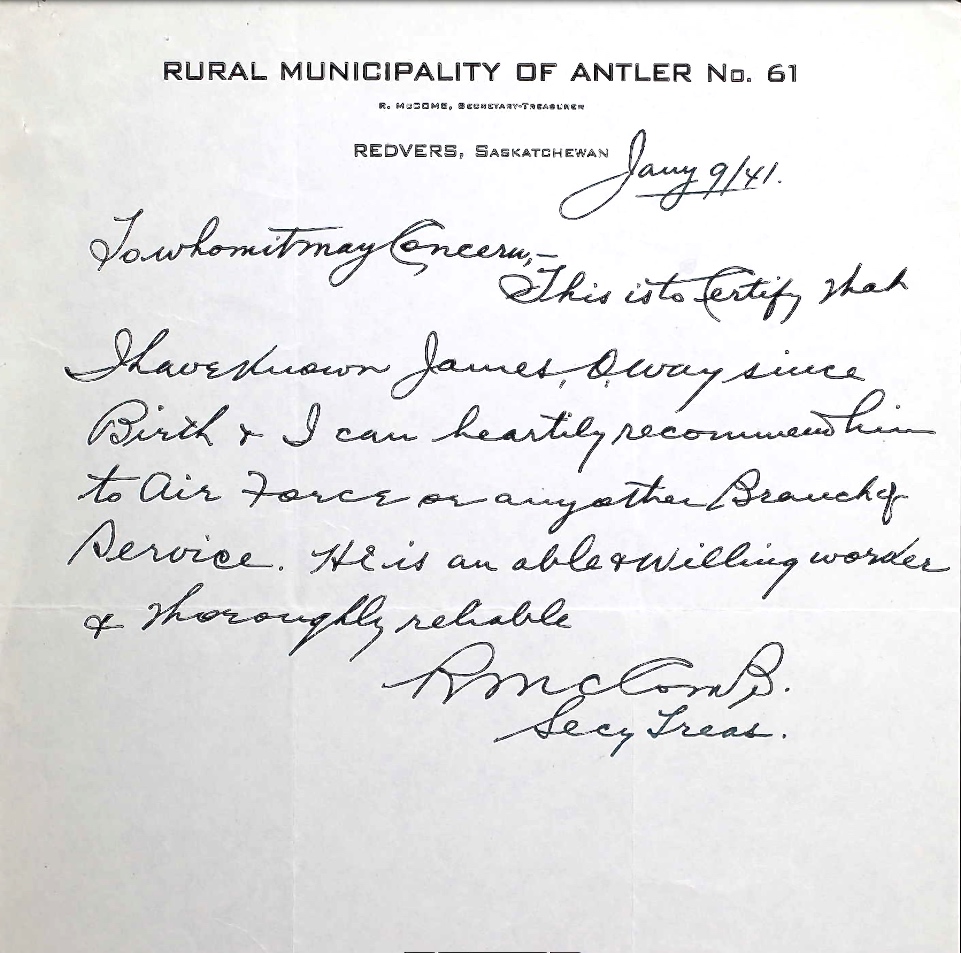 RURAL MUNICIPALITY OF ANTLER No. 61
R. McCOMB, SECRETARY-TREASURER
REDVERS, SASKATCHEWAN
Jany 9/41.
To whom it may Concern,-
This is to Certify that
I have known James, O, Way since
Birth & I can heartily recommend him
to Air Force or any other Branch of
Service. He is an able & Willing worker
& thoroughly reliable
R McComb.
Secy Treas.